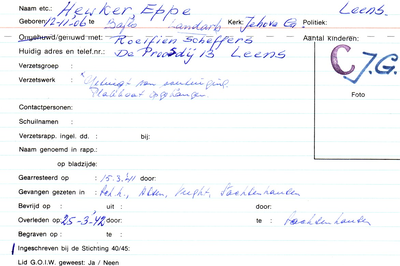 Naam etc.: Hewker, Eppe Leens.
Geboren: 12-11-06 te Baflo Landarb. Kerk: Jehova Get Politiek:
Ongehuwd/gehuwd met: Roelfien Scheffers Aantal kinderen:
Huidig adres en telef.nr.: De Proosdij 15 Leens
C J.G.
Foto
Verzetsgroep :
Verzetswerk : Getuigt van
Plakkaat opgehangen
Contactpersonen:
Schuilnaam :
Verzetsrapp. ingel. dd. : bij:
Naam genoemd in rapp.:
op bladzijde:
Gearresteerd op : 15.3.'41 door:
Gevangen gezeten in : Vught, Sachsenhausen
Bevrijd op : uit : door:
Overleden op: 25-3-'42 door: te : Sachsenhausen
Begraven op : te :
Ingeschreven bij de Stichting 40/45:
Lid G.O.I.W. geweest: Ja / Neen